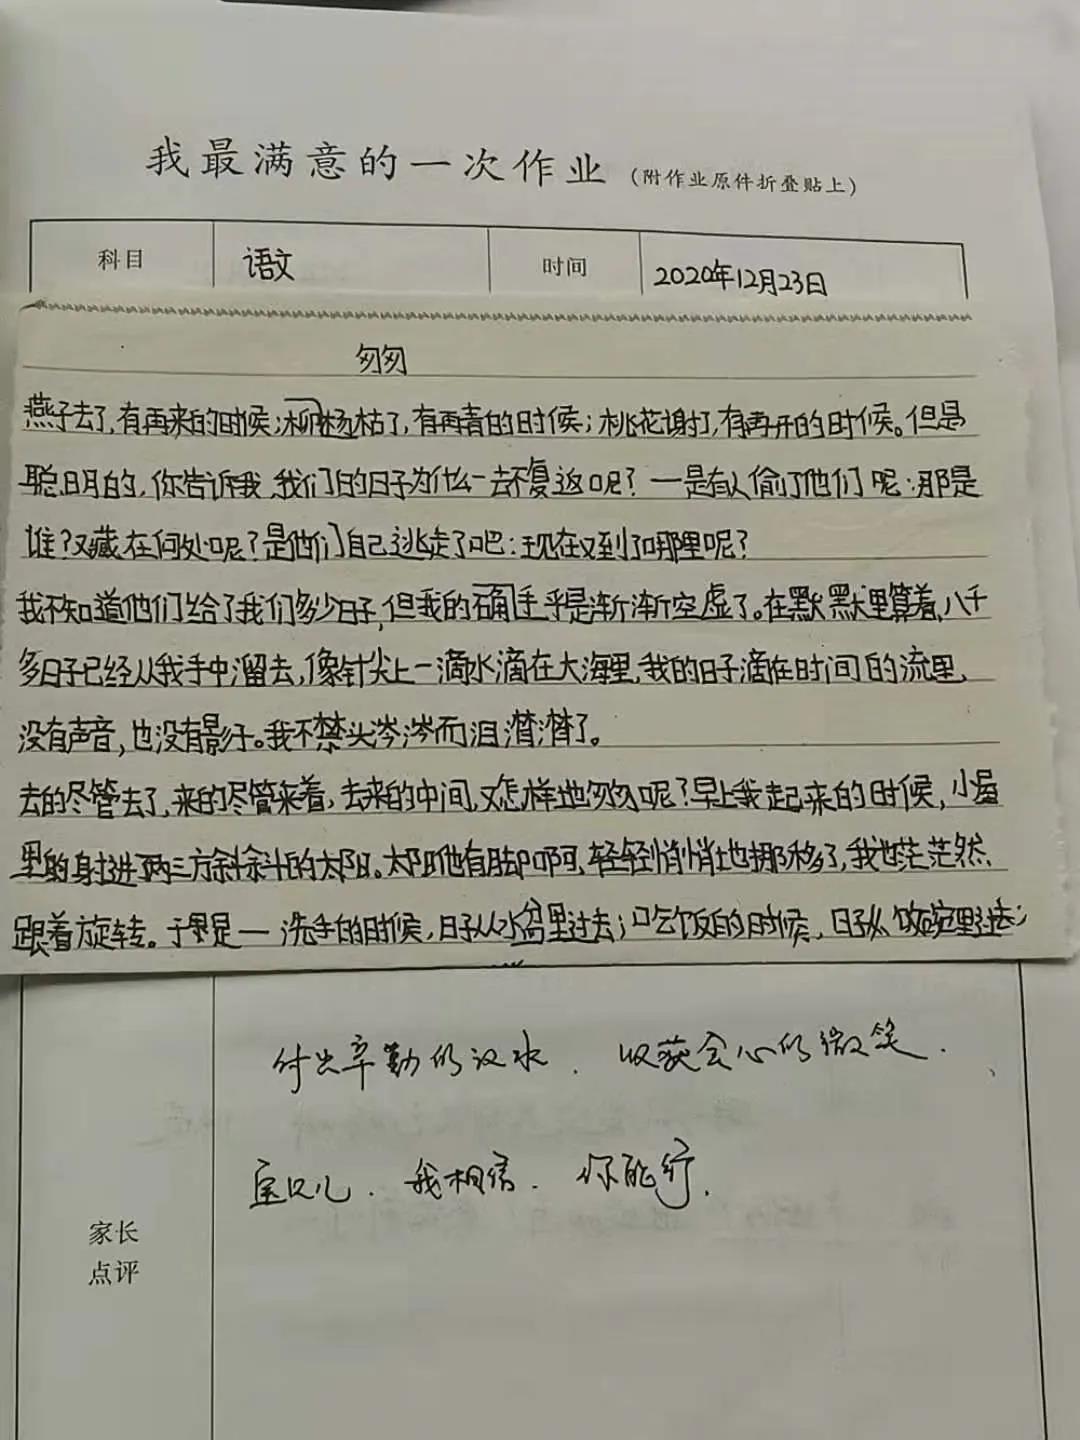 我最满意的一次作业（附作业原件折叠贴上）
科目 语文 时间 2020年12月23日
匆匆
燕子去了,有再来的时候;柳杨枯了,有再青的时候;桃花谢了,有再开的时候。但是
聪明的,你告诉我,我们的日子为什么一去不复返呢?一是有人偷了他们呢:那是
谁?又藏在何处呢?是他们自己逃走了吧:现在又到了哪里呢?
我不知道他们给了我们多少日子,但我的确手乎是渐渐空虚了。在默默里算着,八千
多日子已经从我手中溜去,像针尖上一滴水滴在大海里,我的日子滴在时间的流里,
没有声音,也没有影子。我不禁头涔涔而泪潸潸了。
去的尽管去了,来的尽管来着,去来的中间,又怎样地匆匆呢?早上我起来的时候,小屋
里的射进两三方斜斜的太阳。太阳他有脚啊,轻轻悄悄地挪移了,我也茫茫然
跟着旋转。于是一洗手的时候,日子从水盆里过去;吃饭的时候,日子从饭碗里过去;
付出辛勤的汉水.收获会心的微笑.
宝贝儿.我相信.你能行.
家长
点评